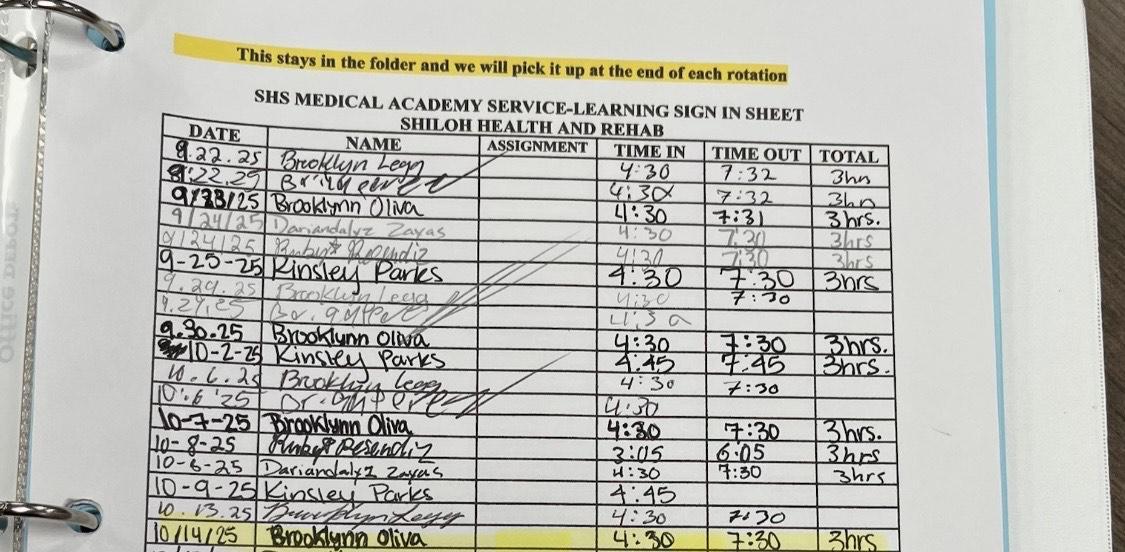 This stays in the folder and we will pick it up at the end of each rotation
SHS MEDICAL ACADEMY SERVICE-LEARNING SIGN IN SHEET
SHILOH HEALTH AND REHAB
DATE NAME ASSIGNMENT TIME IN TIME OUT TOTAL
9.22.25 Brooklyn Legg 4:30 7:32 3hn
4:30 7:32 3hn
9/23/25 Brooklynn Oliva 4:30 7:31 3hrs.
9/24/25 Dariandalyz Zayas 4:30 7:30 3hrs
9/24/25 Ruby Resendiz 4:30 7:30 3hrs
9-25-25 Kinsley Parks 4:30 7:30 3hrs
9.29.25 Brooklyn Legg 4:30 7:30
4:30
9.30.25 Brooklynn Oliva 4:30 7:30 3hrs.
10-2-25 Kinsley Parks 4:45 7:45 3hrs.
10.6.25 Brooklyn Legg 4:30 7:30
10.6.25 4:30
10-7-25 Brooklynn Oliva 4:30 7:30 3hrs.
10-8-25 Ruby Resendiz 3:05 6:05 3hrs
10-6-25 Dariandalyz Zayas 4:30 7:30 3hrs
10-9-25 Kinsley Parks 4:45
10.13.25 Brooklyn Legg 4:30 7:30
10/14/25 Brooklynn Oliva 4:30 7:30 3hrs
OFFICE DEPOT